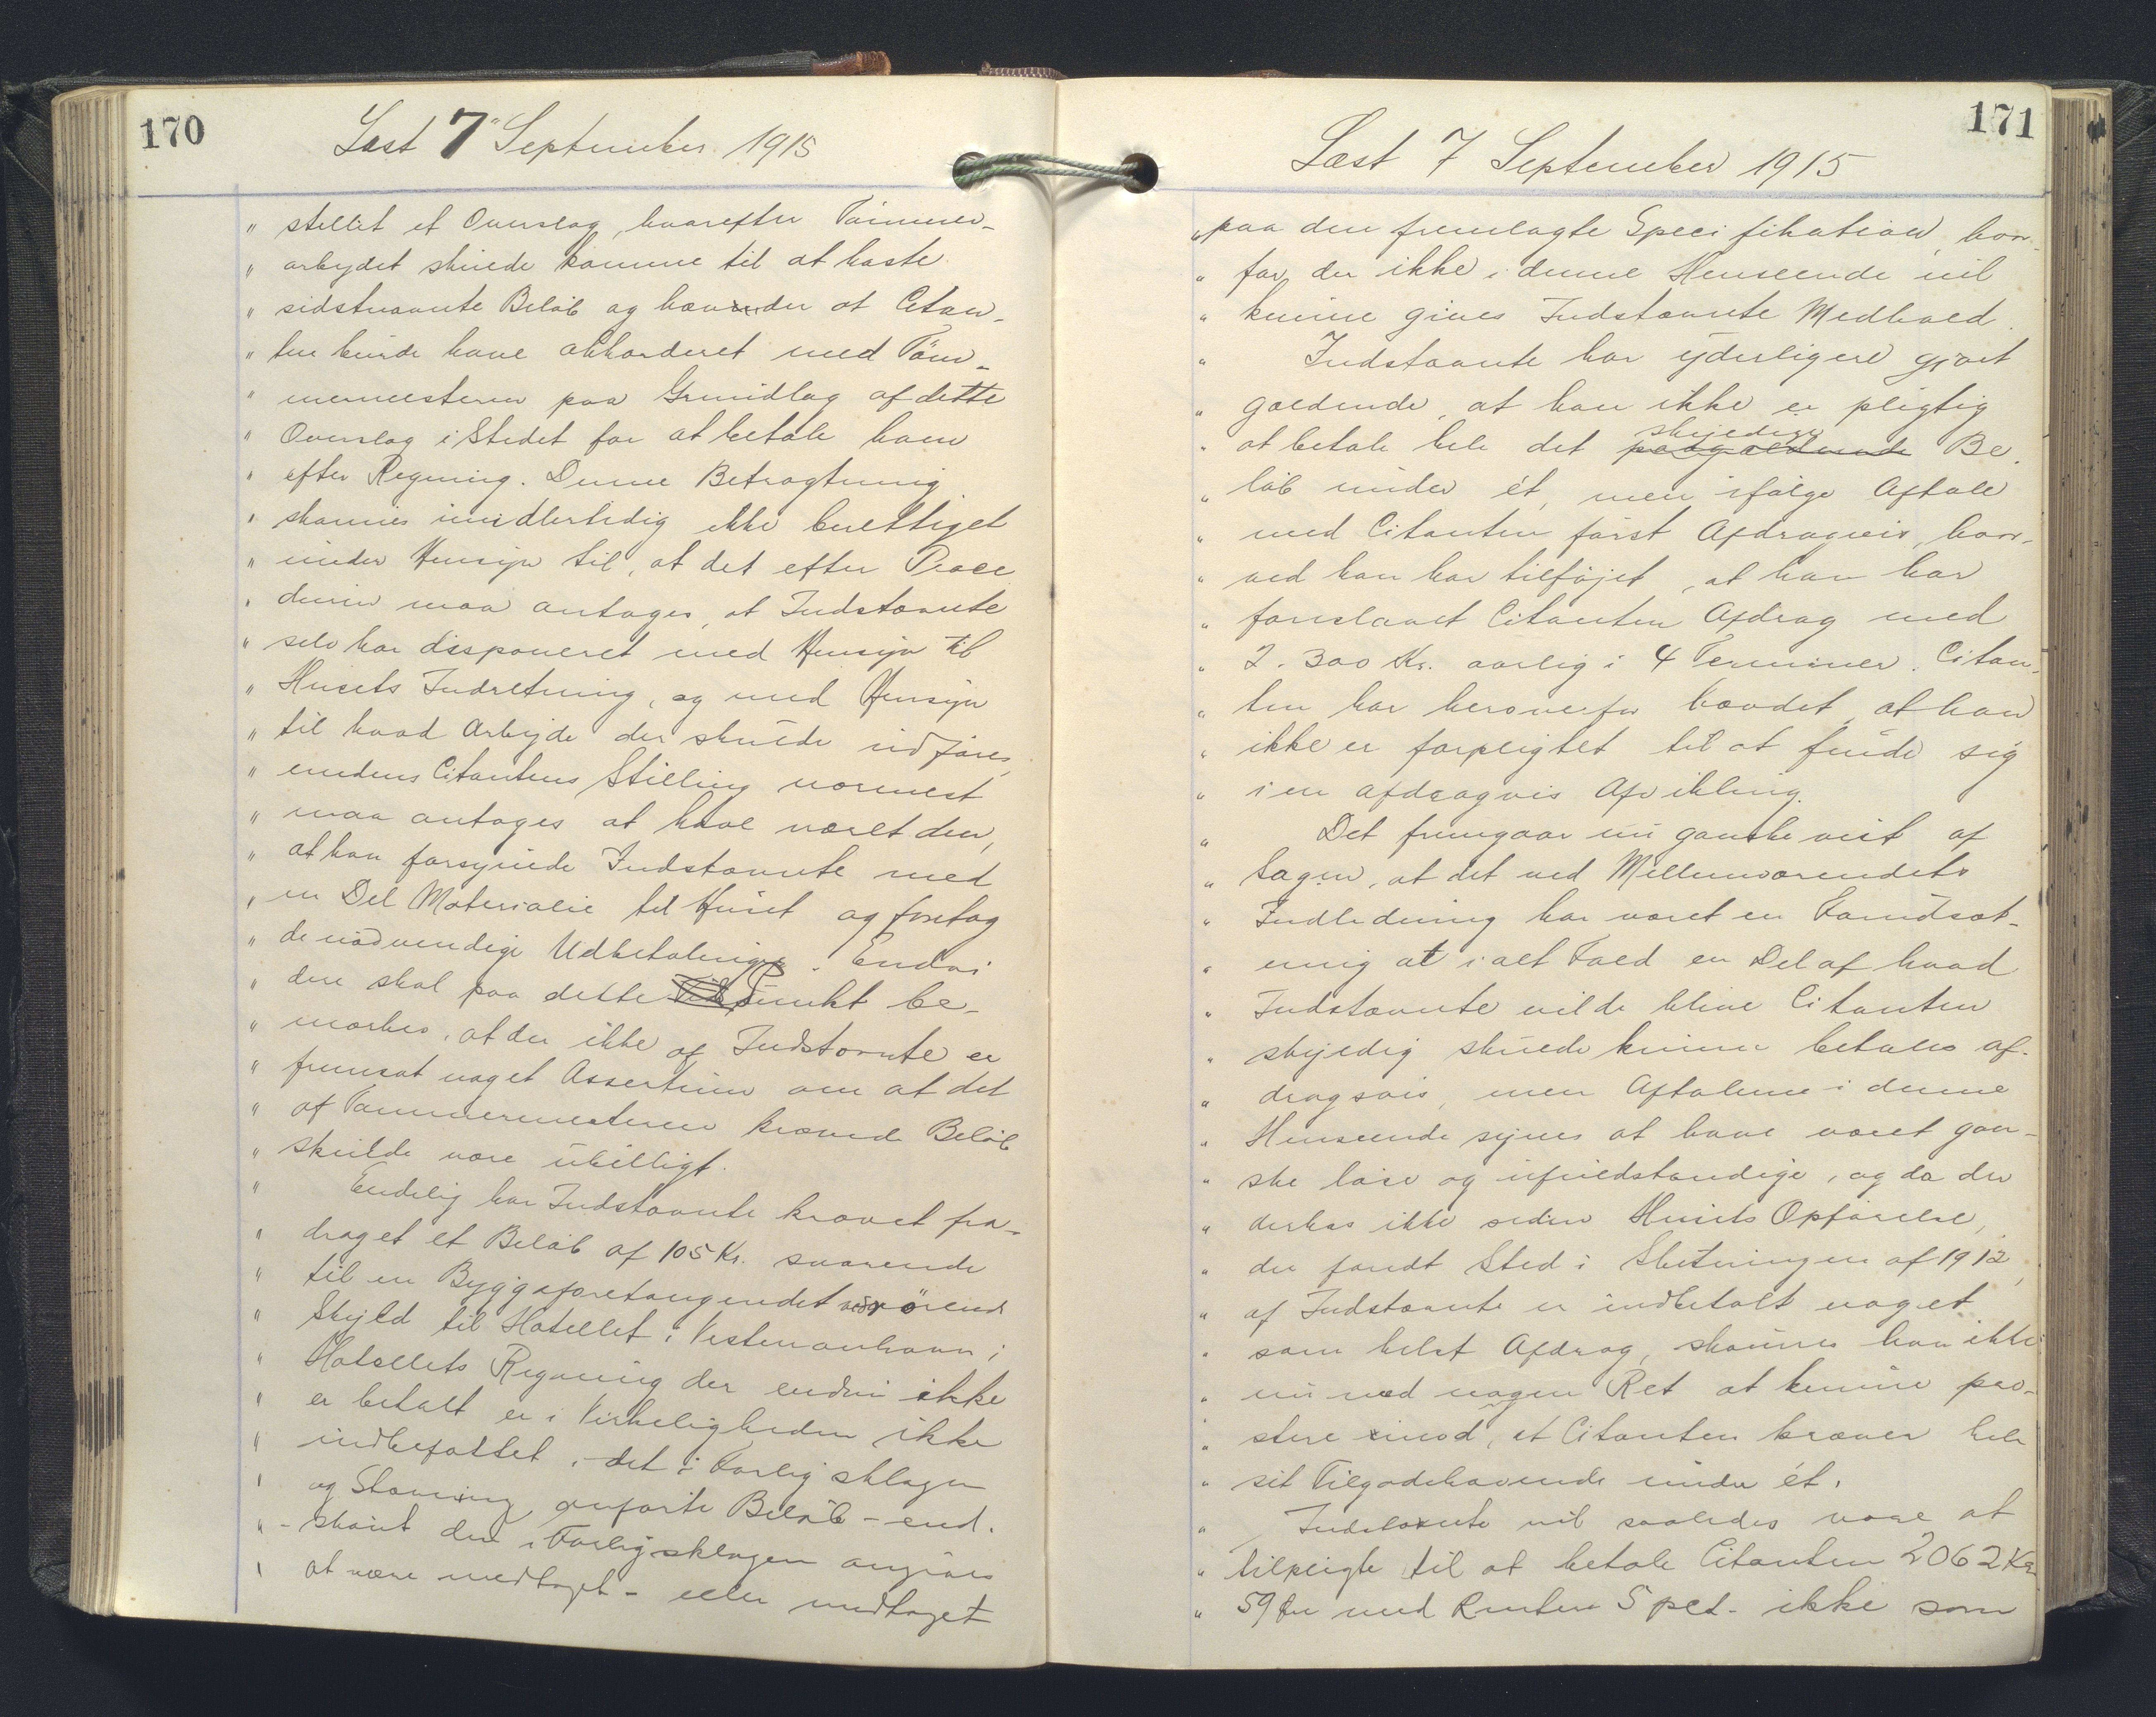 170
Læst 7 September 1915
" stellet et Overslag, hvorefter Tømmer-
" arbejdet skulde komme til at koste
" sidstnævnte Beløb og hævder at Citan-
" ten burde have akkorderet med Töm-
" mermesteren paa Grundlag af dette
" Overslag i Stedet for at betale ham
" efter Regning. Denne Betragtning
" skønnes imidlertidig ikke berettiget
" under Hensyn til, at det efter Proce
" duren maa antages, at Indstævnte
" selv har disponeret med Hensyn til
" Husets Indretning, og med Hensyn
" til hvad Arbejde der skulde udføres,
" medens Citantens Stilling nærmest
" maa antages at have været den,
" at han forsynede Indstævnte med
" en Del Materialie til Huset og foretog
" de nødvendige Udbetalinger. Endvi
" dere skal paa dette Punkt be-
" mærkes, at der ikke af Indstævnte er
" fremsat noget Assertum om at det
" af Tømmermesteren krævede Beløb
" skulde være ubilligt.
" Endelig har Indstævnte krævet fra-
" draget et Beløb af 105 Kr. svarende
" til en Byggeforetangendet vedrörende
" Skyld til Hotellet i Vestmanhavn;
" Hotellets Regning der endnu ikke
" er betalt er i Virkeligheden ikke
" indbefattet i det i Forligsklagen
" og Stævning anførte Beløb - end-
" - skønt den i Forligsklagen angives
" at være medtaget - eller medtaget
171
Læst 7 September 1915
" paa den fremlagte Specifikation, hvor-
" for der ikke i denne Henseende vil
" kunne gives Indstævnte Medhold.
" Indstævnte har yderligere gjort
" gældende, at han ikke er pligtig
" at betale hele det paagældende skyldige Be-
" løb under ét, men ifølge Aftale
" med Citanten först Afdragsvis, hvor-
" ved han har tilføjet, at han har
" foreslaaet Citanten Afdrag med
" 2-300 Kr. aarlig i 4 Terminer. Citan-
" ten har heroverfor hævdet, at han
" ikke er forpligtet til at finde sig
" i en afdragsvis Afvikling.
" Det fremgaar nu ganske vist af
" Sagen, at det ved Mellemværendets
" Indledning har været en Forudsæt-
" ning at i alt Fald en Del af hvad
" Indstævnte vilde blive Citanten
" skyldig skulde kunne betales af-
" dragsvis, men Aftalerne i denne
" Henseende synes at have været gan-
" ske løse og ufuldstændige, og da der
" derhos ikke siden Husets Opførelse,
" der fandt Sted i Slutningen af 1912,
" af Indstævnte er indbetalt noget
" som helst Afdrag, skønnes han ikke
" nu med nogen Ret at kunne pro-
" stere imod, at Citanten kræver hele
" sit Tilgodehavende under ét.
" Indstævnte vil saaledes være at
" tilpligte til at betale Citanten 2062 Kr.
" 59 Øre med Renter 5 pct. ikke som